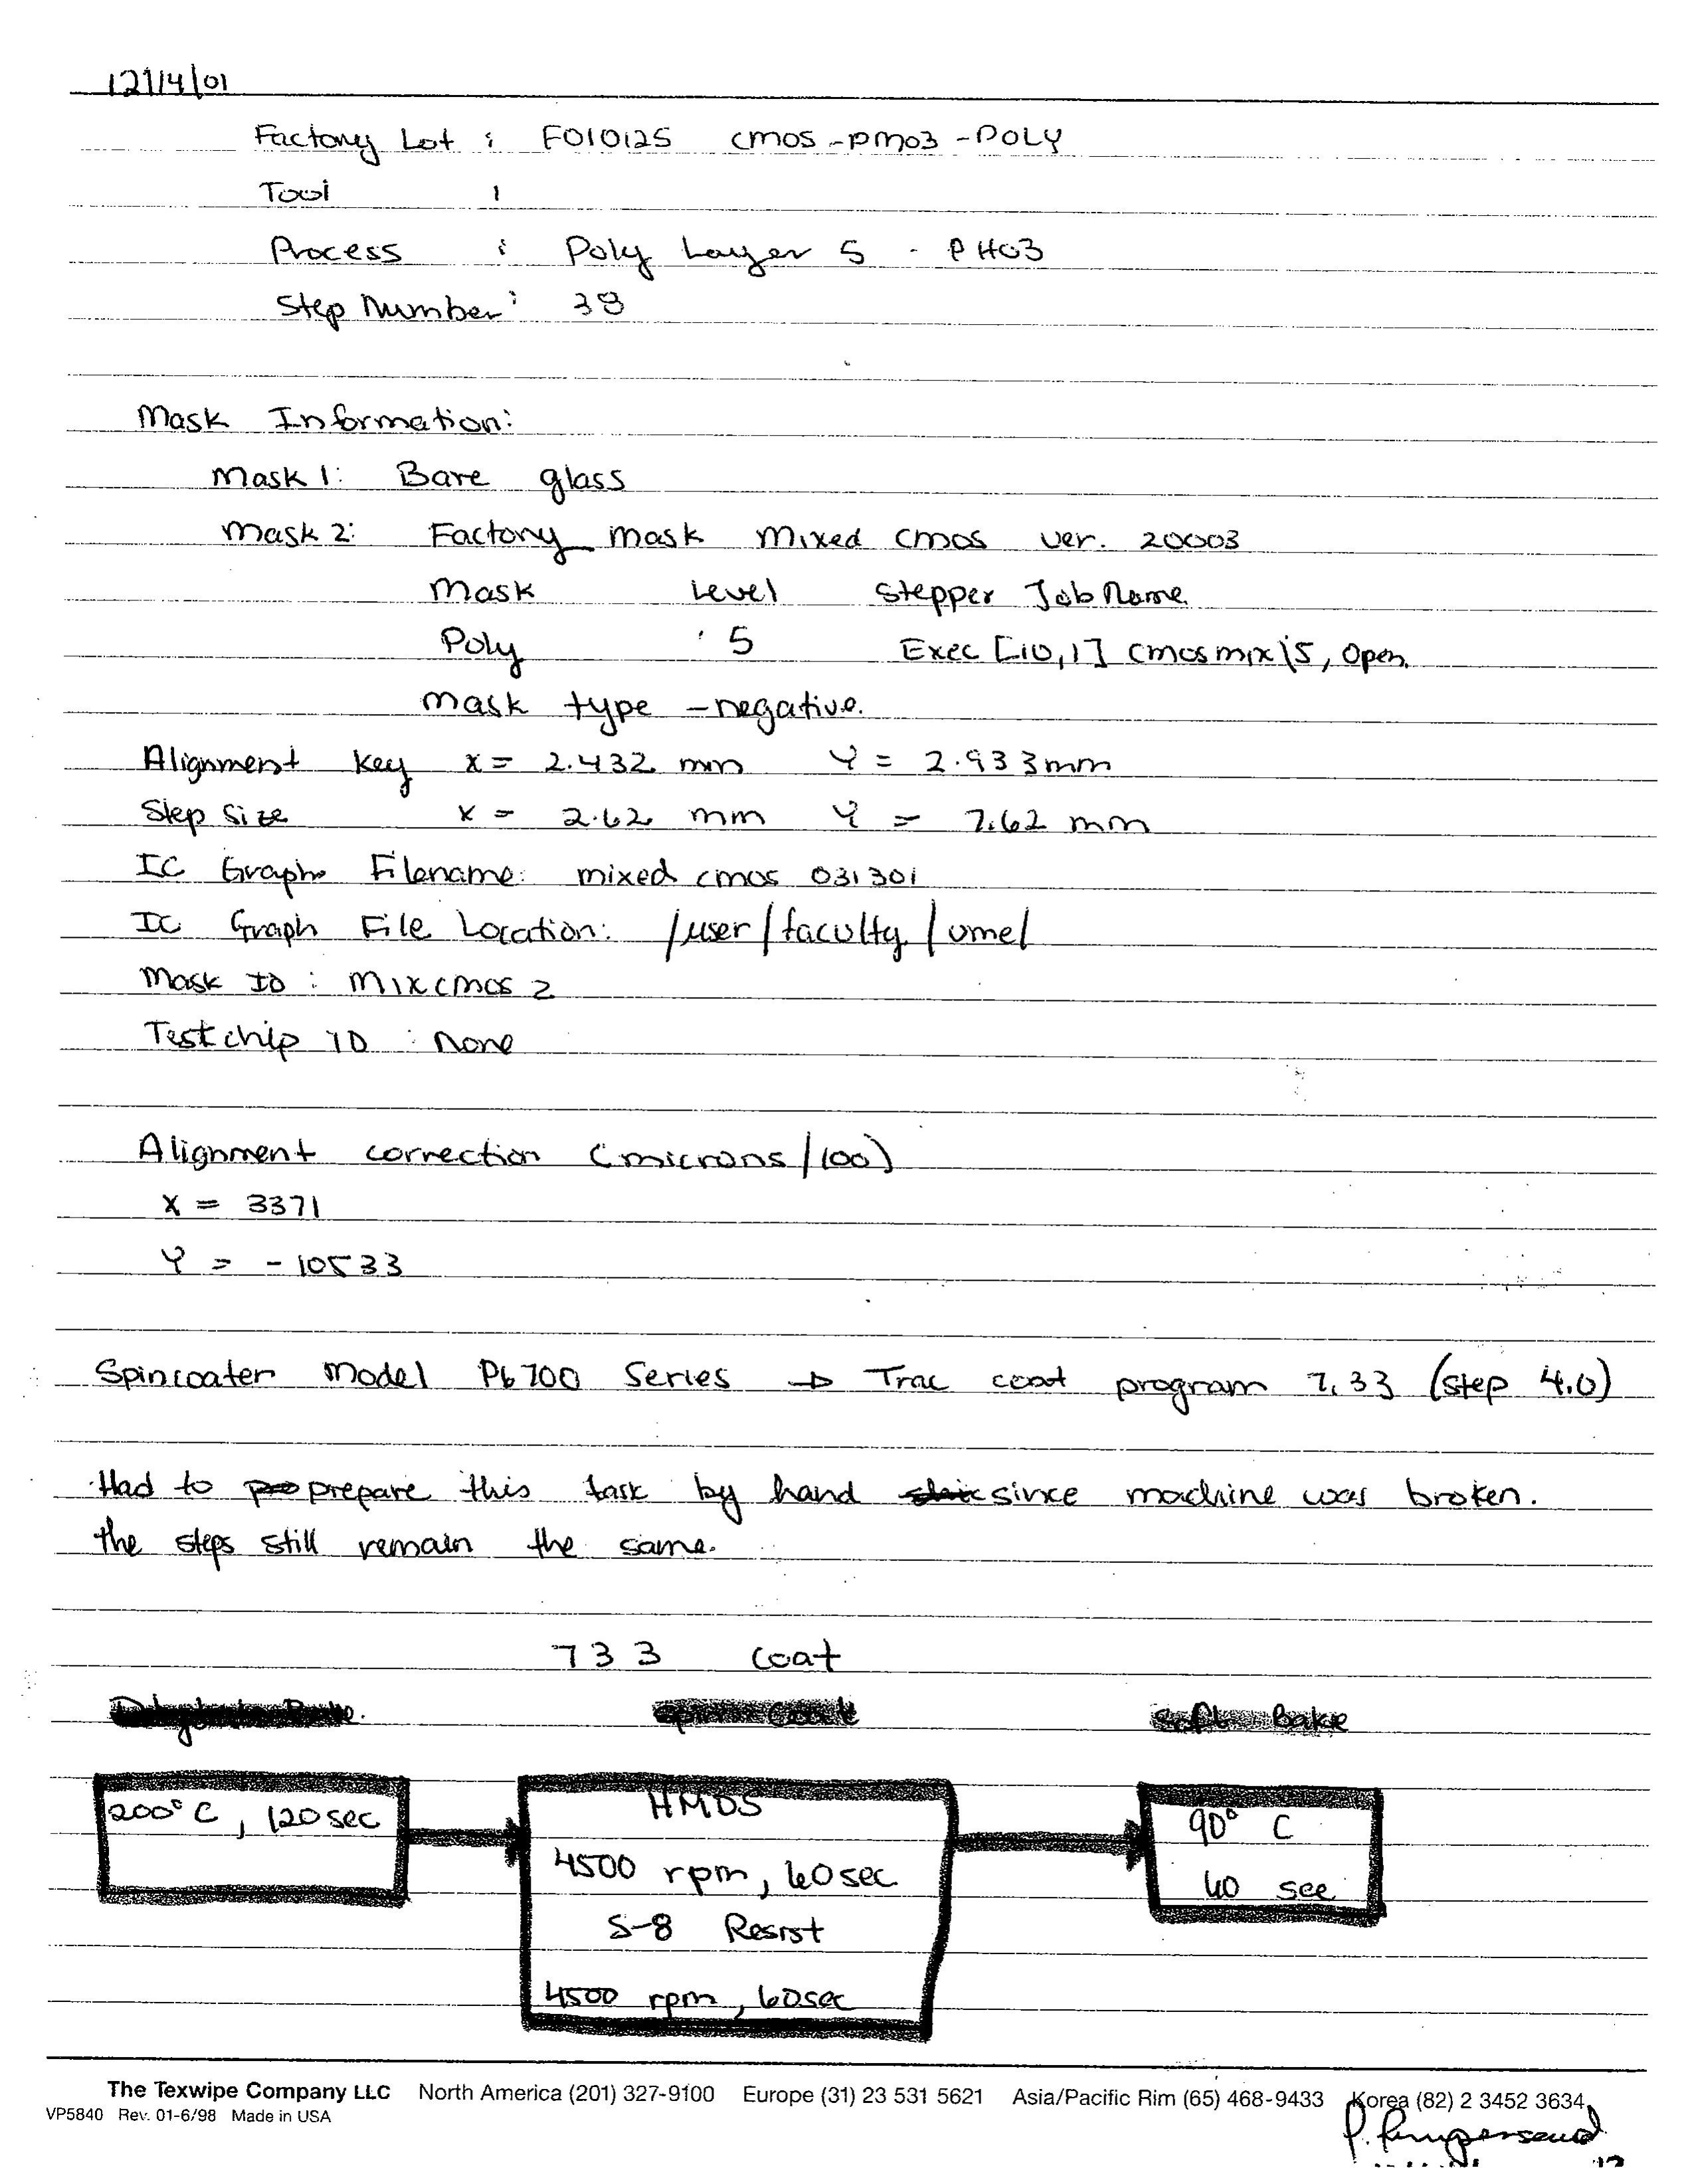 12/14/01
Factory Lot : F010125 CMOS-PM03-POLY
Tool :
Process : Poly Layer 5 - PH03
Step Number : 38
Mask Information:
Mask 1: Bare glass
Mask 2: Factory mask Mixed CMOS ver. 20003
Mask Level Stepper Job Name
Poly 5 Exec [10,1] cmosmix\5, Open
mask type - negative.
Alignment key X = 2.432 mm Y = 2.933mm
Step Size X = 2.62 mm Y = 7.62 mm
IC Graph Filename: mixed cmos 031301
IC Graph File Location: /user/faculty/vmel
Mask ID : Mixcmos 2
Testchip ID : None
Alignment correction (microns/100)
X = 3371
Y = -10533
Spincoater Model P6700 Series → Trac coat program 7.33 (step 4.0)
Had to prepare this task by hand since machine was broken.
the steps still remain the same.
733 coat
Dehydrate Bake. Spin Coat Soft Bake
200° C, 120sec
HMDS
4500 rpm, 60sec
S-8 Resist
4500 rpm, 60sec
90° C
60 sec
The Texwipe Company LLC North America (201) 327-9100 Europe (31) 23 531 5621 Asia/Pacific Rim (65) 468-9433 Korea (82) 2 3452 3634
VP5840 Rev. 01-6/98 Made in USA